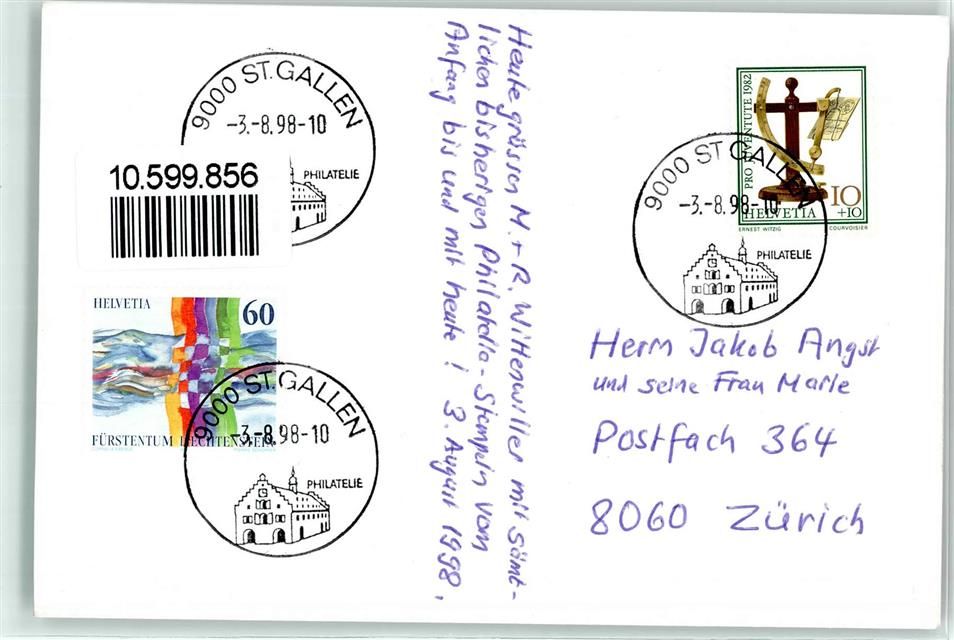 9000 ST. GALLEN
-3.-8.98-10
PHILATELIE
10.599.856
HELVETIA 60
FÜRSTENTUM LIECHTENSTEIN
9000 ST. GALLEN
-3.-8.98-10
PHILATELIE
Heute grüssen M. + R. Wittenwiller mit sämt-
lichen bisherigen Philatelia-Stempeln vom
Anfang bis und mit heute! 3. August 1998.
PRO JUVENTUTE 1982
10
+10
HELVETIA
ERNEST WITZIG COURVOISIER
9000 ST. GALLEN
-3.-8.98-10
PHILATELIE
Herrn Jakob Angst
und seine Frau Marle
Postfach 364
8060 Zürich